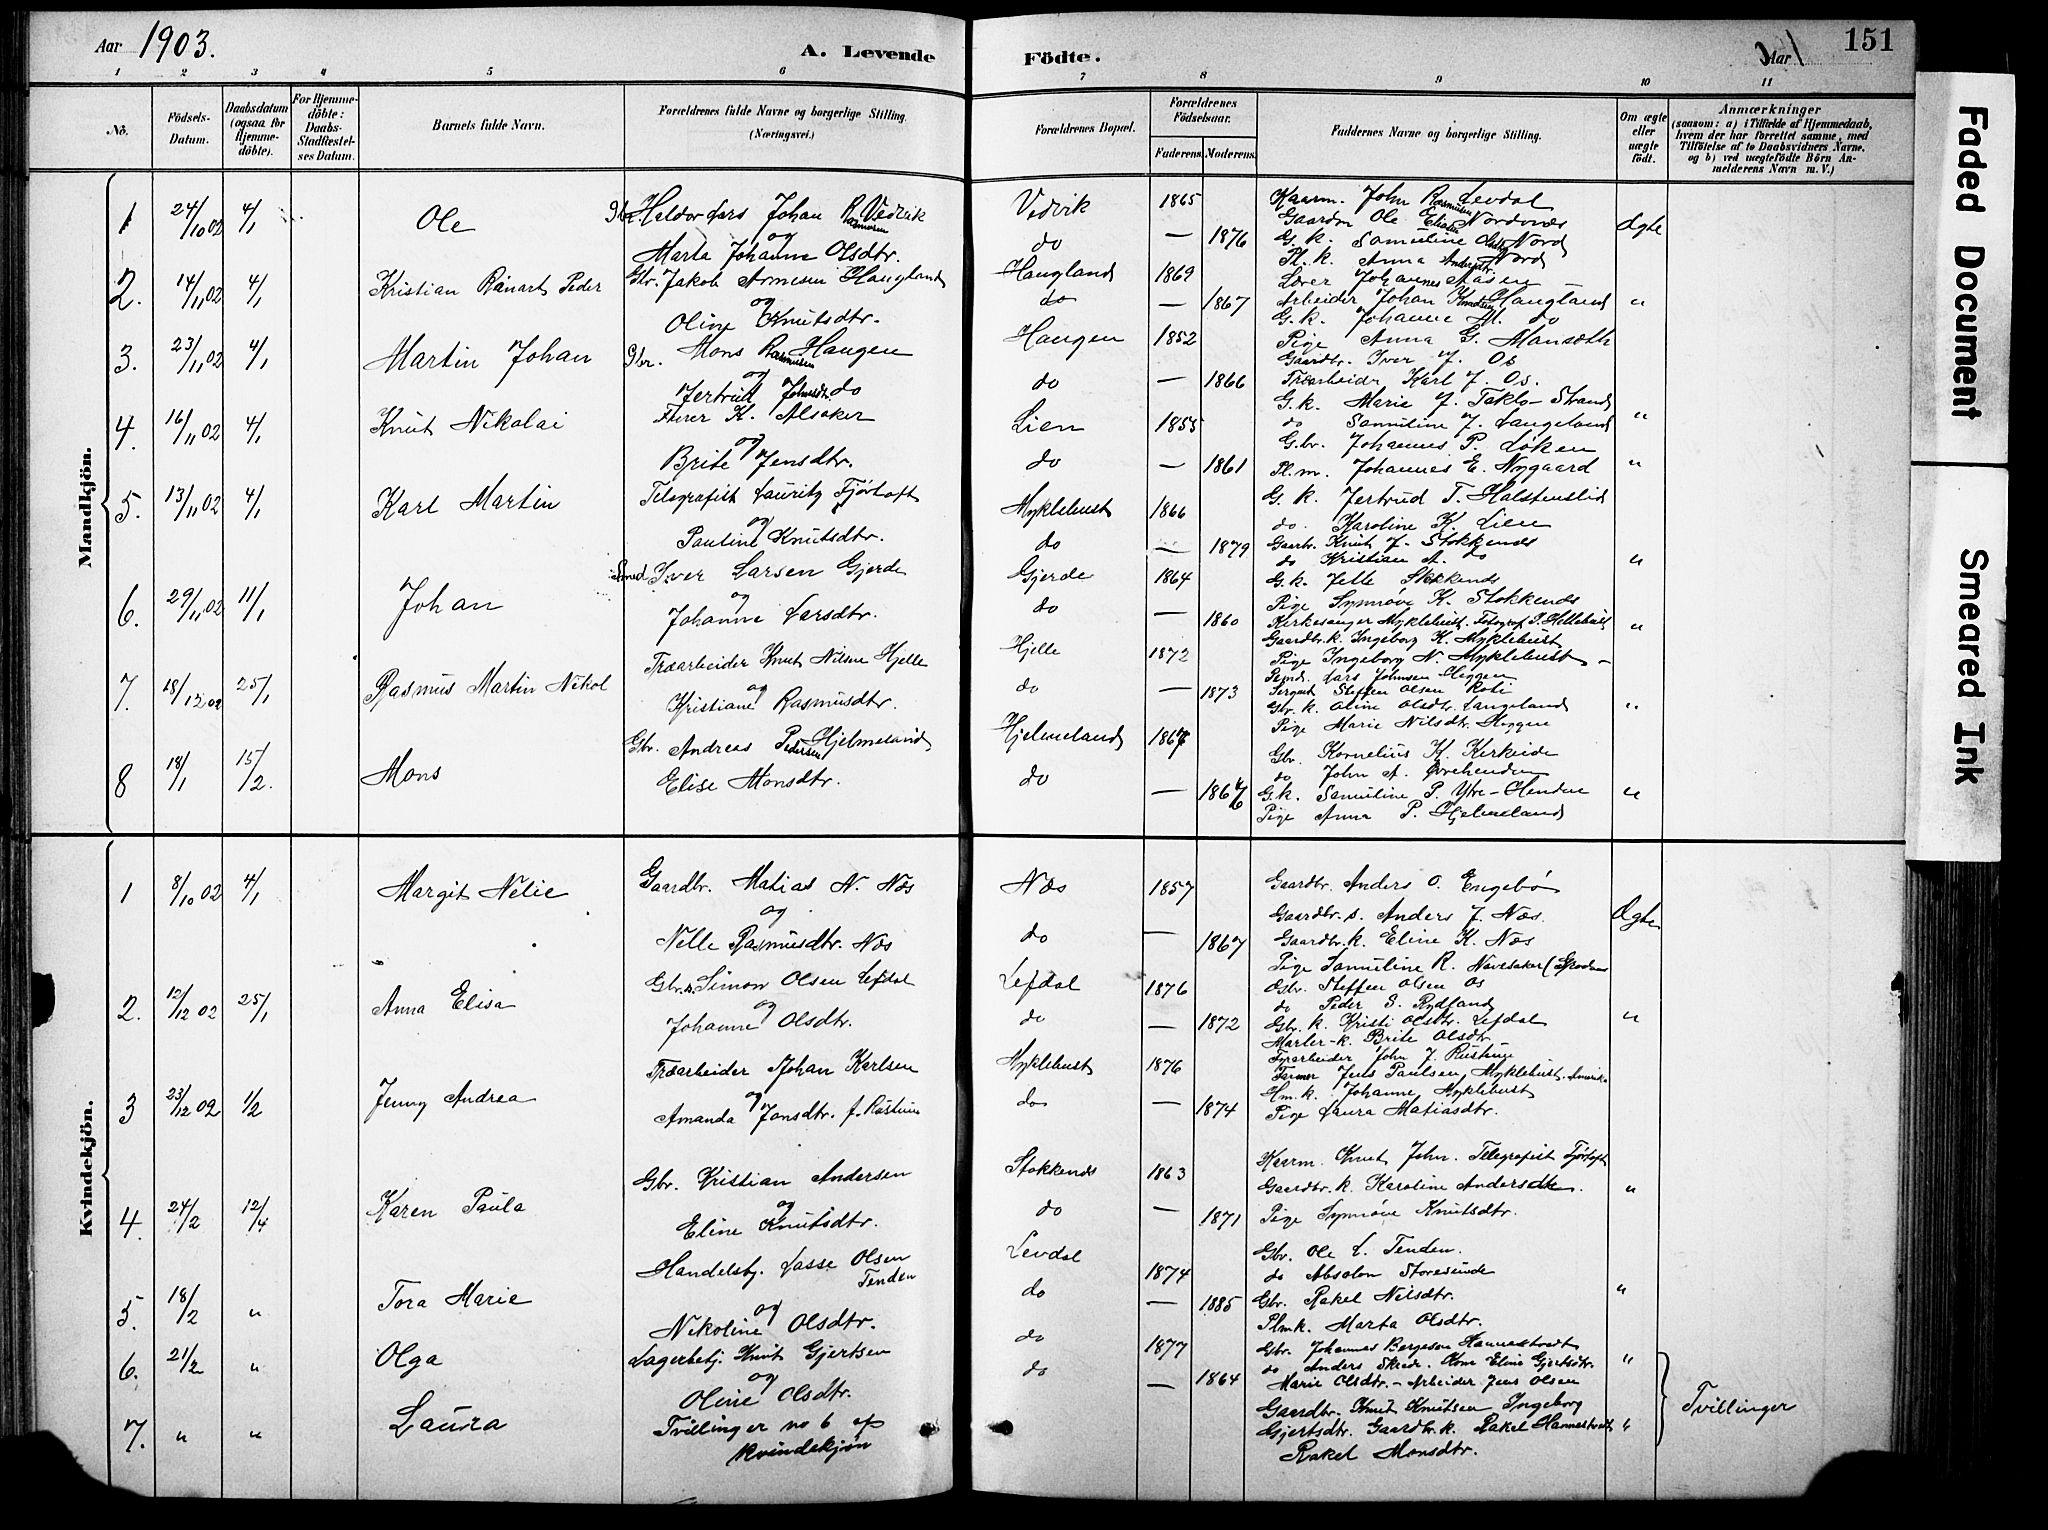 Aar 1903.
A. Levende Födte.
Aar
151
1 2 3 4 5 6 7 8 9 10 11
No.
Födsels-Datum.
Daabsdatum (ogsaa for Hjemmedöbte).
For Hjemmedöbte: Daabs-Stadfæstelses Datum.
Barnets fulde Navn.
Forældrenes fulde Navne og borgerlige Stilling. (Næringsvei.)
Forældrenes Bopæl.
Forældrenes Födselsaar.
Faderens. Moderens.
Faddernes Navne og borgerlige Stilling.
Om ægte eller uægte födt.
Anmærkninger
(saasom: a) i Tilfælde af Hjemmedaab, hvem der har forrettet samme, med Tilföielse af to Daabsvidners Navne, og b) ved uægtefödte Börn Anmelderens Navn m. V.)
Mandkjön.
1 24/10 02 4/1 Ole
Lars Johan Rasmusen Vedvik
og
Marta Johanne Olsdtr.
Vedvik 1865
do — 1876
Kaarm. John R. Levdal
Gaardm Ole Rasmusen Nordnes
G. k. Samuline Nord
Pl. k. Anna Andersdtr. Nord
Ægte
2. 14/11 02 4/1 Kristian Rånart Peder
Gbr. Jakob Arnesen Haugland
og
Oline Knutsdtr.
Haugland 1869
do — 1867
Lærer Johannes Aasen
Arbeider Johan Knudsen Haugland
G. k. Johanne M. do
Pige Anna G. Mansæth
"
3. 23/11 02 4/1 Martin Johan
Gbr. Mons Rasmusen Haugen
og
Jertrud Johnsdtr. do
Haugen 1852
do — 1866
Gaardbr. Iver J. Os
Træarbeidr Karl J. Os.
G. k. Marie J. Taklo-Strand
do Samuline J. Langeland
"
4. 16/11 02 4/1 Knut Nikolai
Iver K. Alsaker
og
Brite Jensdtr.
Lien 1855
do — 1861
G.br. Johannes P. Løken
Pl. m. Johannes E. Nygaard
G. k. Jertrud T. Halstenslid
do. Karoline K. Lien
"
5. 13/11 02 4/1 Karl Martin
Telegrafist Lauritz Fjørtoft
og
Pauline Knutsdtr.
Myklebust 1866
do — 1879
Gaarbr. Knut J. Stokkenes
do Kristian A. do
G. k. Jelle Stokkenes
Pige Synnøve K. Stokkenes
"
6. 29/11 02 11/1 Johan
Smed Iver Larsen Gjerde
og
Johanne Larsdtr.
Gjerde 1864
do — 1860
Kirkesanger Myklebust. Fotograf J. Hellebust
Gaardbr. k. Ingeborg K. Myklebust
Pige Ingeborg N. Myklebust –
"
7. 18/12 02 25/1 Rasmus Martin Nikol
Træarbeider Knut Nilsen Hjelle
og
Kristiane Rasmusdtr.
Hjelle 1872
do — 1873
Lars Johnsen Heggen
Sergeant Steffen Olsen Roti
Gbr. k. Oline Olsdtr. Langeland
Pige Marie Nilsdtr. Heggen
"
8 18/1 15/2. Mons
Gbr. Andreas Pedersen Hjelmeland
Elise Monsdtr.
Hjelmeland
do —
Gbr. Kornelius K. Kirkeide
do John A. Øvrehenden
G. k. Samuline P. Ytre-Henden
Pige Anna P. Hjelmeland
"
Kvindekjön.
1 8/10 02 4/1 Margit Nelie
Gaardbr. Matias N. Næs
og
Nelle Rasmusdtr. Næs
Næs 1857
do — 1867
Gaardbr. Anders O. Engebø
Gaardbr. s. Anders J. Næs.
Gaardbr. k. Eline K. Næs
Pige Samuline R. Navesaker
Ægte
2. 12/12 02 25/1 Anna Elisa
Gbr. s. Simon Olsen Lefdal
og
Johanne Olsdtr.
Lefdal 1876
do — 1872
Gbr. Steffen Olsen Os
do Peder S. Rydland
Gbr. k. Kristi Olsdtr. Lefdal
Brite Olsdtr
"
3 23/12 02 1/2 Jenny Andrea
Træarbeider Johan Karlsen
og
Amanda Jonsdtr. f. Rustune
Myklebust 1876
do — 1874
John J. Rustune
Farmer Jens Paulsen Myklebust, Amerika
Hm. k. Johanne Myklebust
Pige Laura Matiasdtr.
4. 24/2 12/4 Karen Paula
Gbr. Kristian Andersen
og
Eline Knutsdtr.
Stokkenes 1863
do — 1871
Kaarm. Knut John. Telegrafist Fjørtoft
Gaardbr. k. Karoline Andersdtr.
Pige Synnøve Knutsdtr.
"
5. 18/2 " Tora Marie
Handelsbj. Lasse Olsen Tenden
og
Nikoline Olsdtr.
Levdal 1874
do — 1885
Gbr. Ole L. Tenden.
do Absalon Storesunde
Gbr. Rakel Nilsdtr.
Plmk. Marta Olsdtr.
"
6. 21/2 " Olga
Lagerbetj. Knut Gjertsen
og
Oline Olsdtr.
do 1877
do — 1864
Gbr. Johannes Børgesen Hannestvedt
do Anders Skrede. Kone Eline Gjertsdtr.
Marie Olsdtr. – Arbeider Jens Olsen
"
7. " " Laura
Tvillinger no 6 af kvindekjön
Gaardbr. Knut Knutsen Ingeborg
Gjertsdtr. Gaardbr. k. Rakel Hannestvedt
Rakel Monsdtr.
"
Tvillinger
Faded Document
Smeared Ink